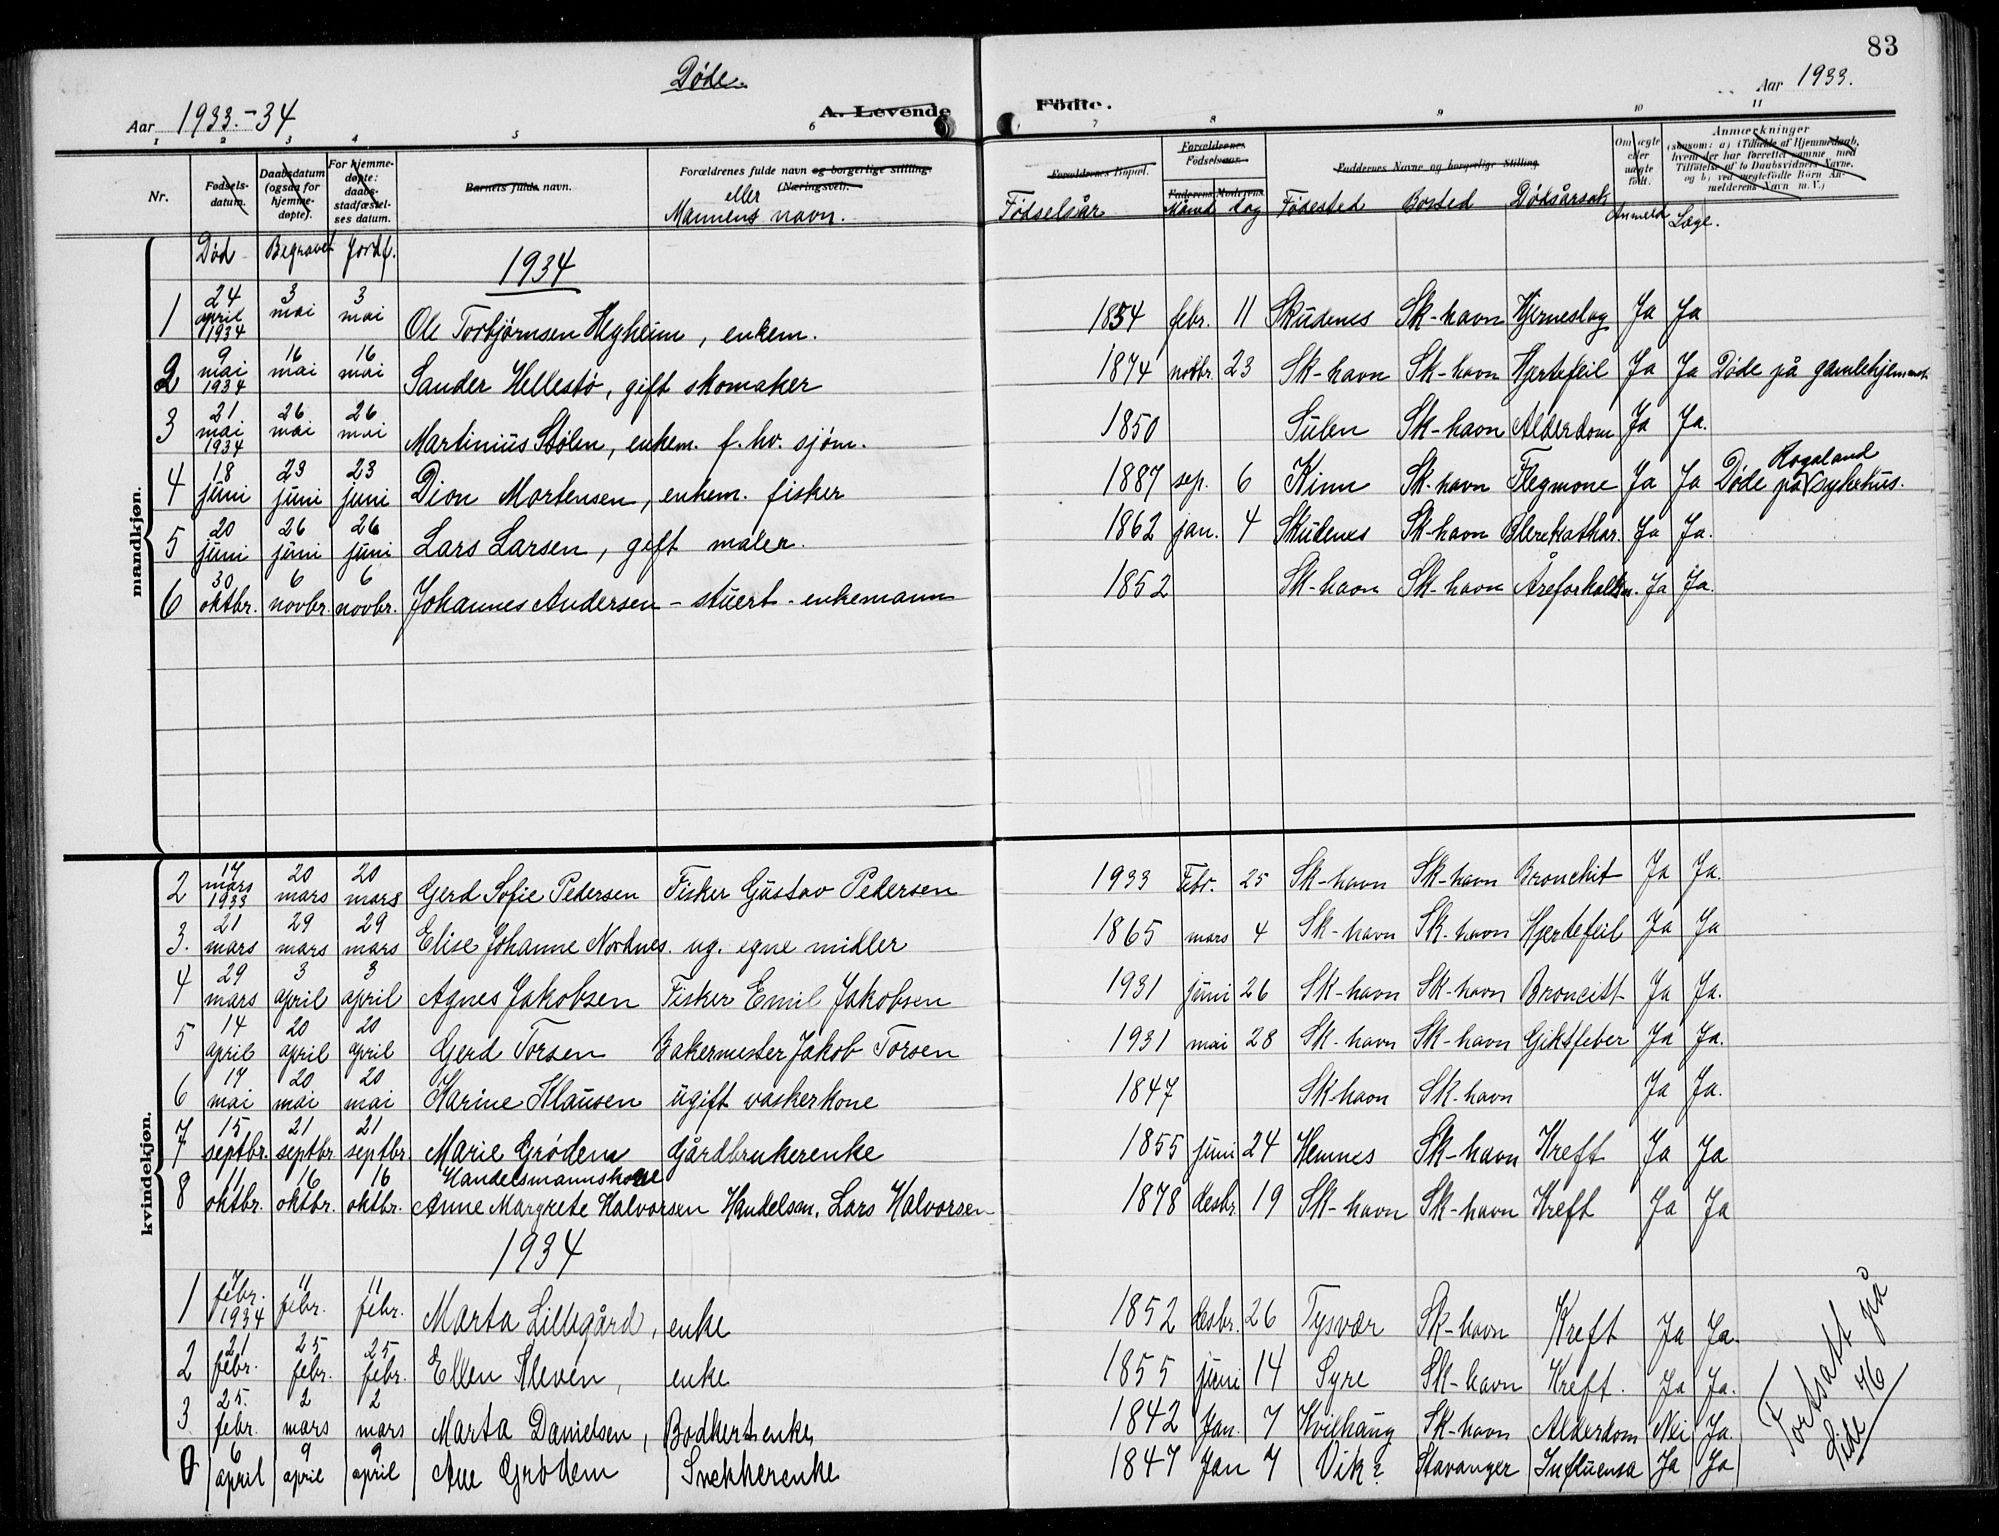 83
Døde.
Aar 1933.-34
A. Levende Födte.
Aar 1933.
1 2 3 4 5 6 7 8 9 10 11
Nr. Fødsels-datum. Daabsdatum (ogsaa for hjemme-døpte). For hjemme-døpte: daabs-stadfæstel-ses datum. Barnets fulde navn. Forældrenes fulde navn og borgerlige stilling (Næringsvei). Forældrenes Bopæl. Forældrenes Fødselsaar. Faderens Moderens Faddernes Navne og borgerlige Stilling. Om ægte eller uægte født. Anmærkninger (saasom: a) (Tilfælde af Hjemmedaab, hvem der har forrettet samme med Tilføielse af to Daabsvidners Navne, og b) ved uægtefødte Börn An-melderens Navn m. V.)
eller Mannens navn. Fødselsår Måned dag Fødested Bosted Dødsårsak Anmeld Læge.
Død Begravet Jordf.
mandkjøn.
1934
1 24 april 1934 3 mai 3 mai Ole Torbjørnsen Hegheim, enkem. 1854 febr. 11 Skudenes Sk-havn Hjerneslag Ja Ja
2 9 mai 1934 16 mai 16 mai Sander Hellestø, gift skomaker 1874 novbr. 23 Sk-havn Sk-havn Hjertefeil Ja Ja Døde på gamlehjemmet
3 21 mai 1934 26 mai 26 mai Martinius Stølen, enkem. f. hv. sjøm. 1850 Sulen Sk-havn Alderdom Ja Ja.
4 18 juni 23 juni 23 juni Dion Mortensen, enkem. fisker 1887 sep. 6 Kinn Sk-havn Flegmone Ja Ja Døde på Rogaland sykehus.
5 20 juni 26 juni 26 juni Lars Larsen, gift maler. 1862 jan. 4 Skudenes Sk-havn Blerekathar. Ja Ja.
6 30 oktbr. 6 novbr. 6 novbr. Johannes Andersen - stuert - enkemann 1852 Sk-havn Sk-havn Åreforkalkn. Ja Ja.
kvindekjøn.
2 17 mars 1933 20 mars 20 mars Gerd Sofie Pedersen Fisker Gustav Pedersen 1933 Febr. 25 Sk-havn Sk-havn Bronchit Ja Ja.
3. 21 mars 29 mars 29 mars Elise Johanne Nordnes. ug. egne midler 1865 mars 4 Sk-havn Sk.havn Hjertefeil Ja Ja
4 29 mars 3 april 3 april Agnes Jakobsen Fisker Emil Jakobsen 1931 juni 26 Sk-havn Sk-havn Broncitt Ja Ja.
5 14 april 20 april 20 april Gerd Torsen Bakermester Jakob Torsen 1931 mai 28 Sk-havn Sk-havn Giktfeber Ja Ja.
6 17 mai 20 mai 20 mai Karine Klausen ugift vaskerkone 1847 Sk-havn Sk-havn Ja Ja.
7 15 septbr. 21 septbr. 21 septbr. Marie Grødem Gårdbrukerenke 1855 juni 24 Hemnes Sk-havn Kreft Ja Ja
Handelsmannskone
8 11 oktbr. 16 oktbr. 16 oktbr. Anne Margrete Halvorsen Handelsm. Lars Halvorsen 1878 desbr. 19 Sk-havn Sk-havn Kreft Ja Ja
1934
1 7 febr. 1934 11 febr. 11 febr. Marta Lillegård, enke 1852 desbr. 26 Tysvær Sk-havn Kreft Ja Ja.
2 21 febr. 25 febr. 25 febr. Ellen Kleven, enke 1855 juni 14 Syre Sk-havn Kreft. Ja Ja.
3 25. febr. 2 mars 2 mars Marta Danielsen, Bødkerenke, 1842 Jan. 7 Kvilhaug Sk-havn Alderdom Nei Ja.
0 6 april 9 april 9 april Ane Grødem Snekkerenke 1847 Jan 7 Vik? Stavanger Influensa Ja Ja
Fortsatt på
Side 46